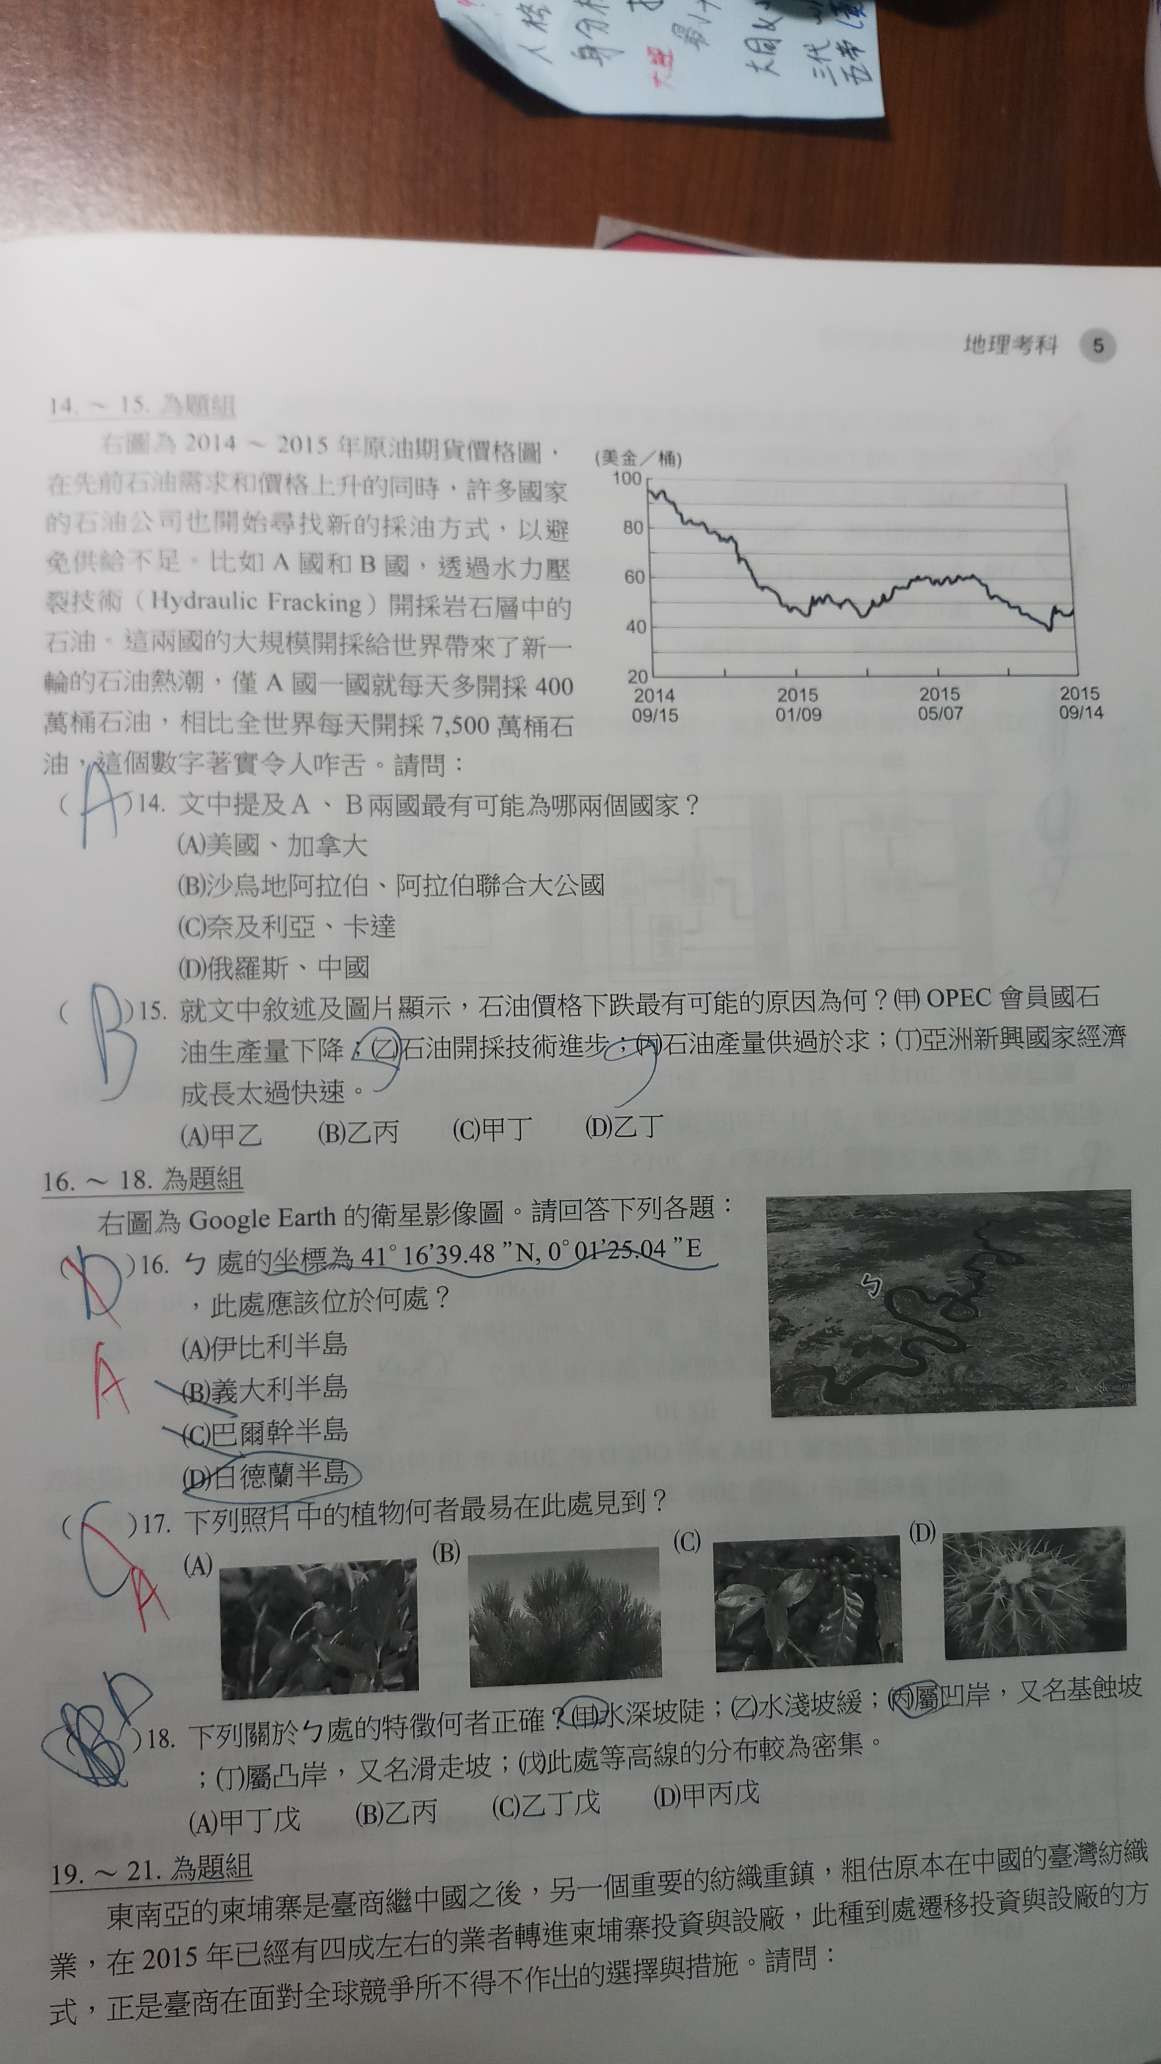 人格
身分
大
最
大同
三代
五帝
地理考科 5
14. ～ 15. 為題組
右圖為 2014 ～ 2015 年原油期貨價格圖，
在先前石油需求和價格上升的同時，許多國家
的石油公司也開始尋找新的採油方式，以避
免供給不足。比如 A 國和 B 國，透過水力壓
裂技術（Hydraulic Fracking）開採岩石層中的
石油。這兩國的大規模開採給世界帶來了新一
輪的石油熱潮，僅 A 國一國就每天多開採 400
萬桶石油，相比全世界每天開採 7,500 萬桶石
油，這個數字著實令人咋舌。請問：
(美金／桶)
100
80
60
40
20
2014 2015 2015 2015
09/15 01/09 05/07 09/14
（ A ）14. 文中提及A、B兩國最有可能為哪兩個國家？
(A)美國、加拿大
(B)沙烏地阿拉伯、阿拉伯聯合大公國
(C)奈及利亞、卡達
(D)俄羅斯、中國
（ B ）15. 就文中敘述及圖片顯示，石油價格下跌最有可能的原因為何？(甲) OPEC 會員國石
油生產量下降；(乙)石油開採技術進步；(丙)石油產量供過於求；(丁)亞洲新興國家經濟
成長太過快速。
(A)甲乙 (B)乙丙 (C)甲丁 (D)乙丁
16. ～ 18. 為題組
右圖為 Google Earth 的衛星影像圖。請回答下列各題：
ㄅ
（ D ）16. ㄅ 處的坐標為 41° 16’39.48 ”N, 0° 01’25.04 ”E
，此處應該位於何處？
(A)伊比利半島
A
(B)義大利半島
(C)巴爾幹半島
(D)日德蘭半島
（ C ）17. 下列照片中的植物何者最易在此處見到？
A
(A) (B) (C) (D)
（ B D ）18. 下列關於ㄅ處的特徵何者正確？(甲)水深坡陡；(乙)水淺坡緩；(丙)屬凹岸，又名基蝕坡
；(丁)屬凸岸，又名滑走坡；(戊)此處等高線的分布較為密集。
(A)甲丁戊 (B)乙丙 (C)乙丁戊 (D)甲丙戊
19. ～ 21. 為題組
東南亞的柬埔寨是臺商繼中國之後，另一個重要的紡織重鎮，粗估原本在中國的臺灣紡織
業，在 2015 年已經有四成左右的業者轉進柬埔寨投資與設廠，此種到處遷移投資與設廠的方
式，正是臺商在面對全球競爭所不得不作出的選擇與措施。請問：